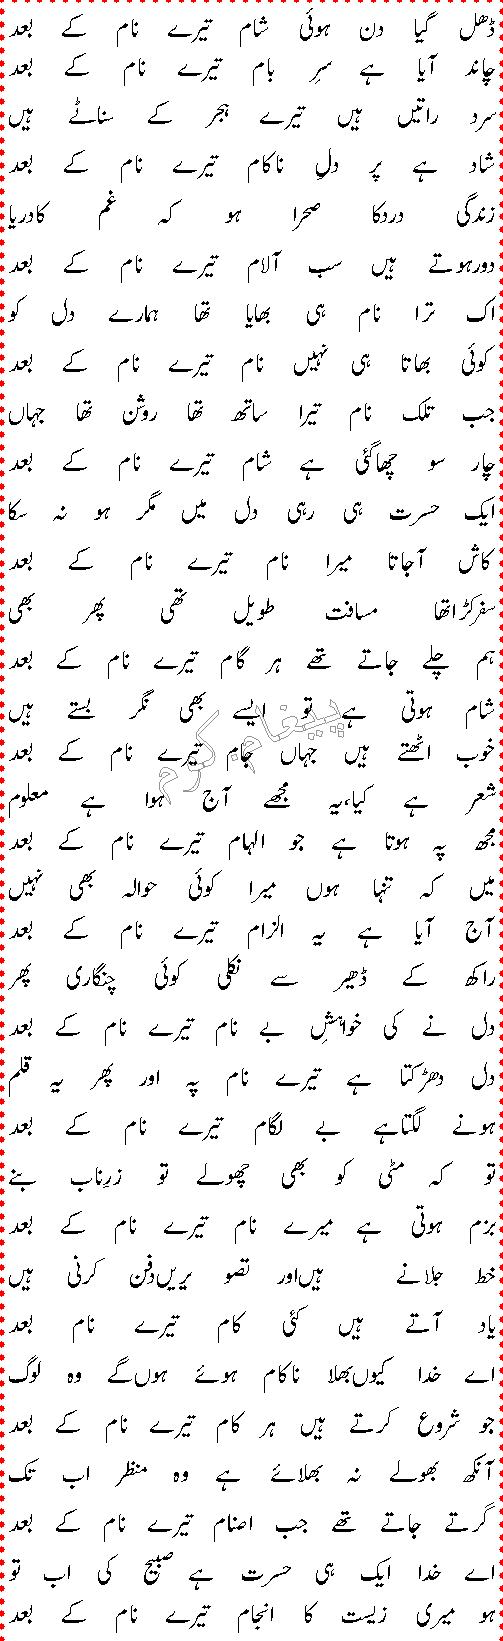 ڈھل گیا دن ہوئی شام تیرے نام کے بعد
چاند آیا ہے سرِ بام تیرے نام کے بعد
سرد راتیں ہیں تیرے ہجر کے سناٹے ہیں
شاد ہے پر دلِ ناکام تیرے نام کے بعد
زندگی دردکا صحرا ہو کہ غم کادریا
دورہوتے ہیں سب آلام تیرے نام کے بعد
اک ترا نام ہی بھایا تھا ہمارے دل کو
کوئی بھاتا ہی نہیں نام تیرے نام کے بعد
جب تلک نام تیرا ساتھ تھا روشن تھا جہاں
چار سو چھاگئی ہے شام تیرے نام کے بعد
ایک حسرت ہی رہی دل میں مگر ہو نہ سکا
کاش آجاتا میرا نام تیرے نام کے بعد
سفرکڑاتھا مسافت طویل تھی پھر بھی
ہم چلے جاتے تھے ہر گام تیرے نام کے بعد
شام ہوتی ہے تو ایسے بھی نگر بستے ہیں
خوب اٹھتے ہیں جہاں جام تیرے نام کے بعد
شعر ہے کیا،یہ مجھے آج ہوا ہے معلوم
مجھ پہ ہوتا ہے جو الہام تیرے نام کے بعد
میں کہ تنہا ہوں میرا کوئی حوالہ بھی نہیں
آج آیا ہے یہ الزام تیرے نام کے بعد
راکھ کے ڈھیر سے نکلی کوئی چنگاری پھر
دل نے کی خواہشِ بے نام تیرے نام کے بعد
دل دھڑکتا ہے تیرے نام پہ اور پھر یہ قلم
ہونے لگتاہے بے لگام تیرے نام کے بعد
تو کہ مٹی کو بھی چھولے تو زرِناب بنے
بزم ہوتی ہے میرے نام تیرے نام کے بعد
خط جلانے ہیںاور تصویریںدفن کرنی ہیں
یاد آتے ہیں کئی کام تیرے نام بعد
اے خدا کیوںبھلا ناکام ہوئے ہوںگے وہ لوگ
جو شروع کرتے ہیں ہر کام تیرے نام کے بعد
آنکھ بھولے نہ بھلائے ہے وہ منظر اب تک
گرتے جاتے تھے جب اصنام تیرے نام کے بعد
اے خدا ایک ہی حسرت ہے صبیح کی اب تو
ہو میری زیست کا انجام تیرے نام کے بعد
پیغام.کوم